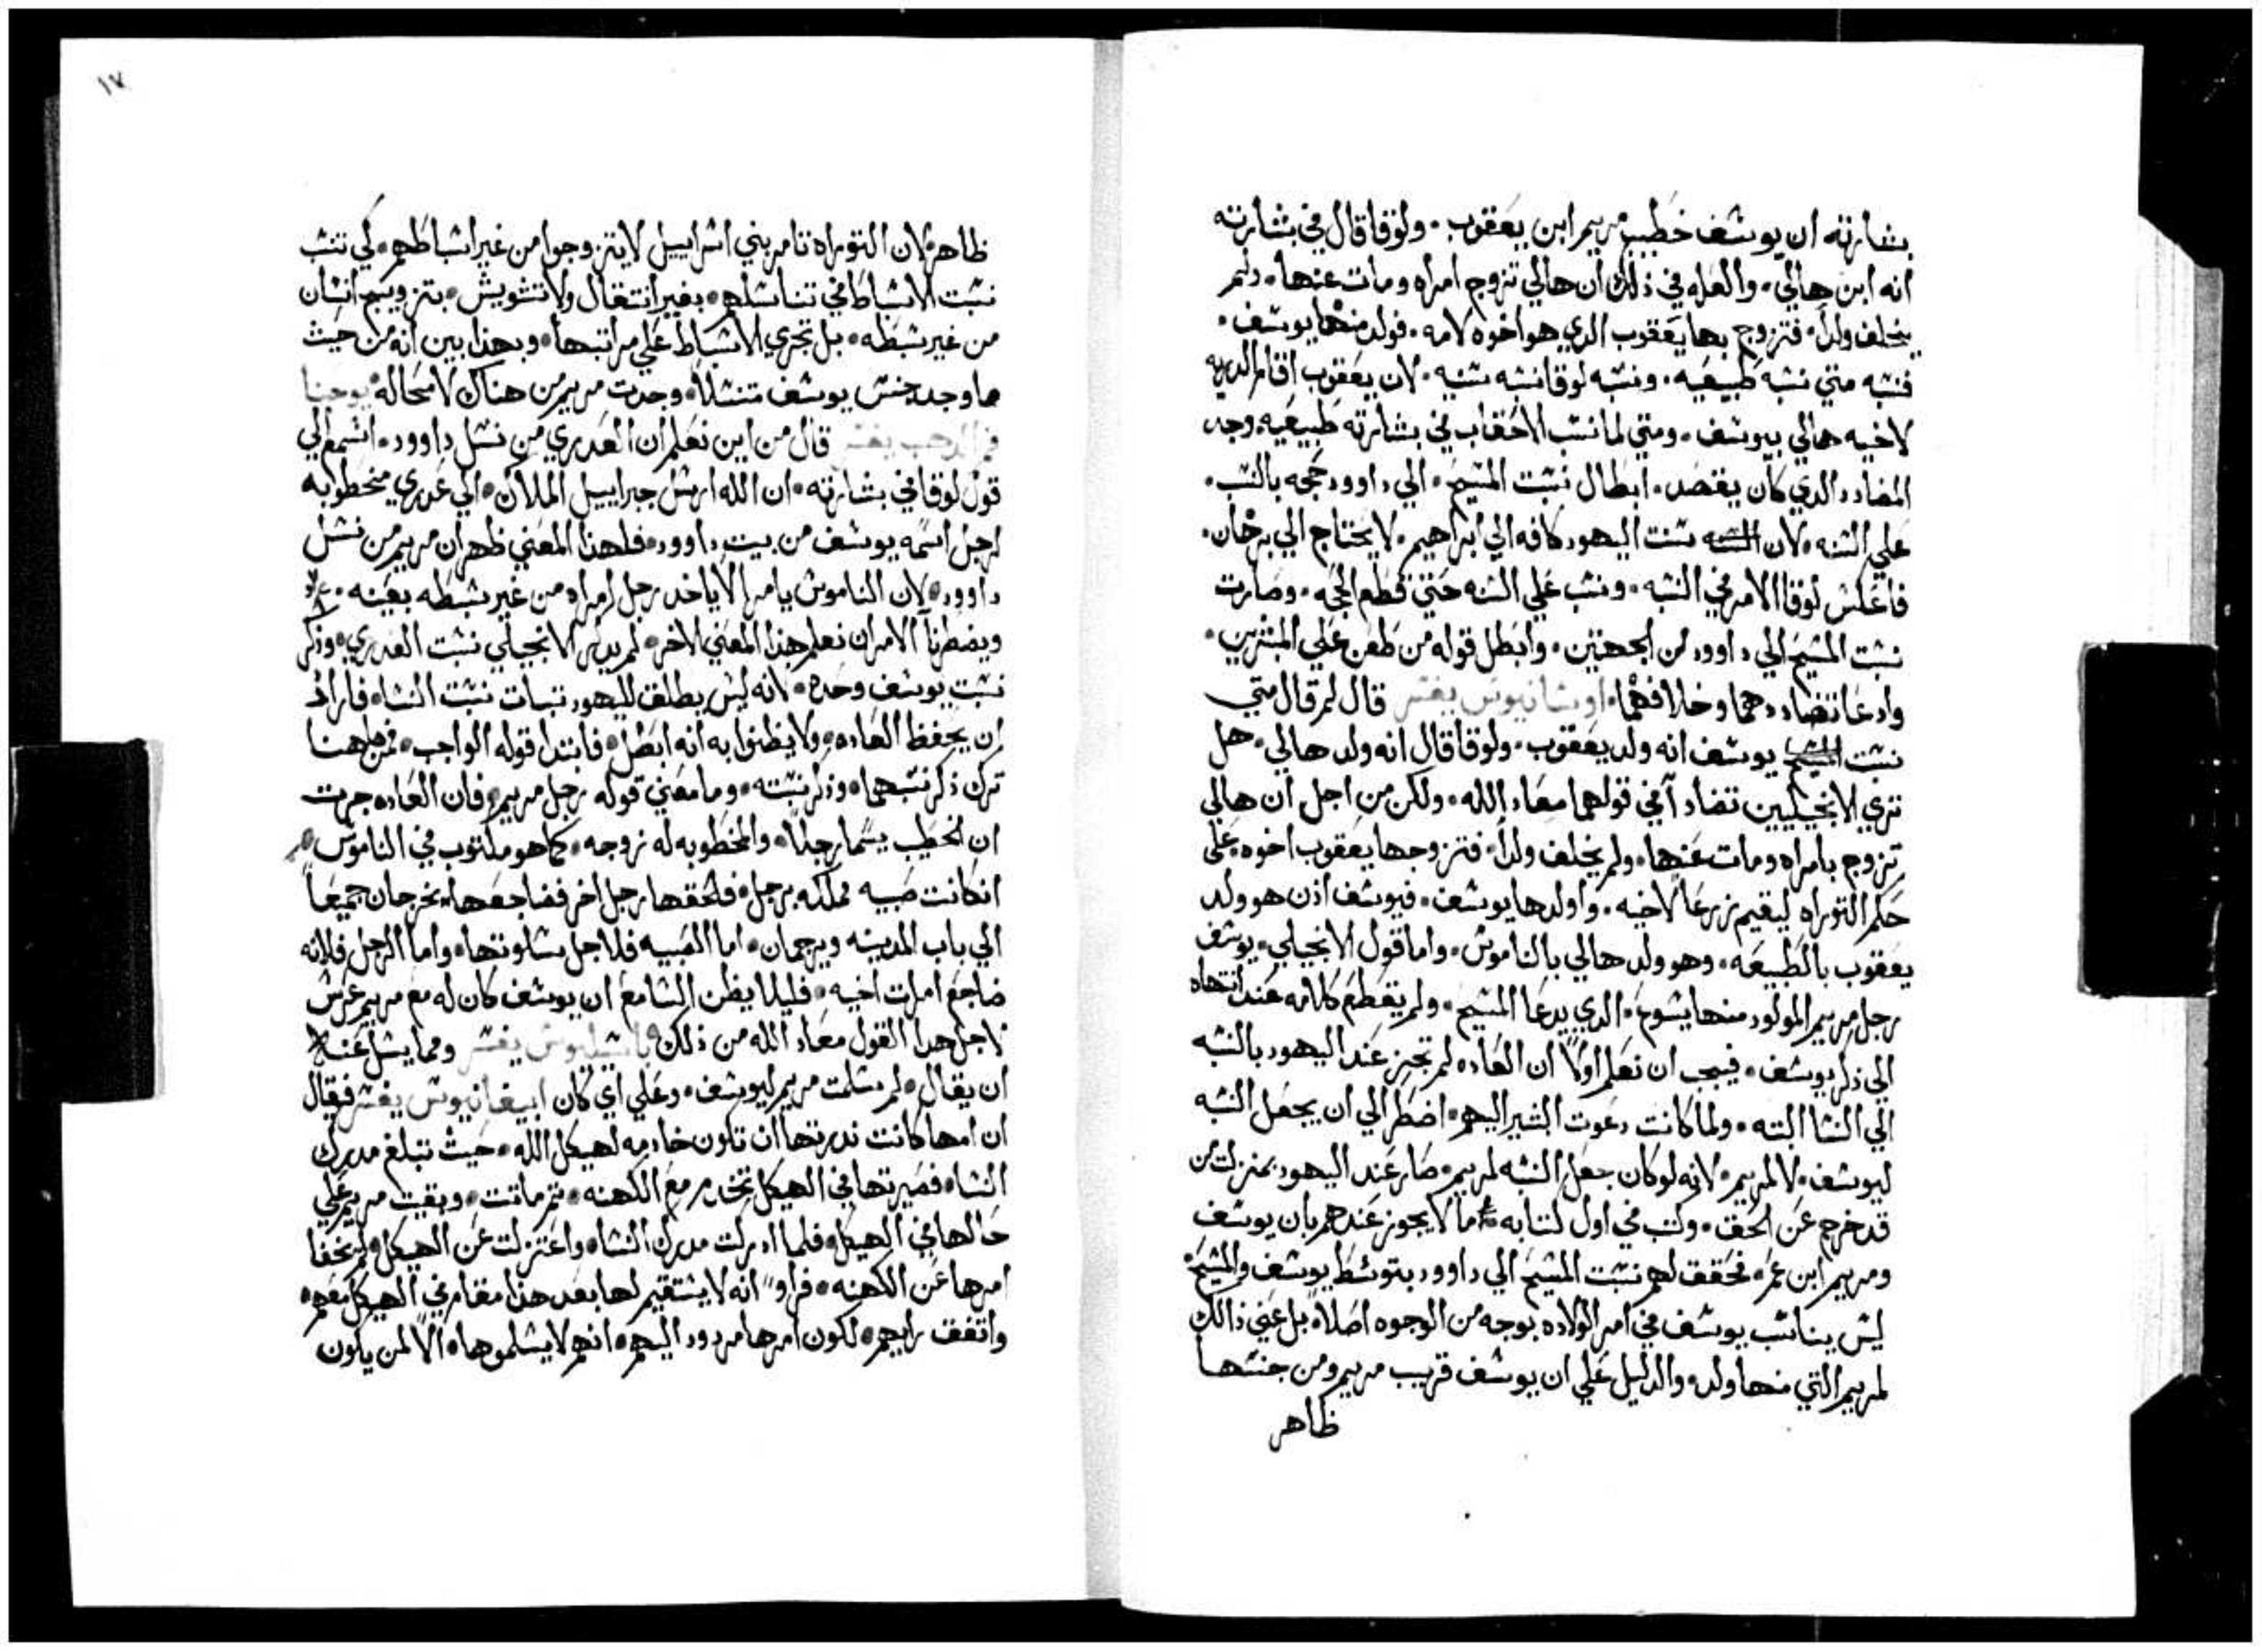 بشارته ان يوسف خطيب مريم ابن يعقوب. ولوقا قال في بشارته
انه ابن هالي. والعله في ذلك ان هالي تزوج امراه ومات عنها. ولم
يخلف ولداً. فتزوج بها يعقوب الدي هو اخوه لامه. فولد منها يوسف.
فنسبه متي نسبه طبيعيه. ونسبه لوقا نسبه سنيه. لان يعقوب اقام الدريه
لاخيه هالي بيوسف. ومتي لما نسب الاحقاب في بشارته طبيعيه. وجد
المضادد الدي كان يقصد. ابطال نسبت المسيح. الي داوود حجه بالنسب.
علي السنه. لان نسبت اليهود كافه الي ابراهيم. لا يحتاج الي برهان.
فاعكس لوقا الامر في النسبه. ونسب علي السنه حتي قطع الحجه. وصارت
نسبت المسيح الي داوود من الجهتين. وابطل قوله من طعن علي المبشرين.
وادعا تضاددهما وخلافهما. اوسانيوس يفسر قال لم قال متي
نسبت المسيح يوسف انه ولد يعقوب. ولوقا قال انه ولد هالي. هل
تري الانجيليين تضاداً في قولهما معاد الله. ولكن من اجل ان هالي
تزوج بامراه ومات عنها. ولم يخلف ولداً. فتزوجها يعقوب اخوه. علي
حكم التوراه ليقيم زرعاً لاخيه. واولدها يوسف. فيوسف اذن هو ولد
يعقوب بالطبيعه. وهو ولد هالي بالناموس. واما قول الانجيلي. يوسف
رجل مريم المولود منها يسوع. الدي يدعا المسيح. ولم يقطع كلامه عند انتهاه
الي ذكر يوسف. فيجب ان نعلم اولاً ان العاده لم تجر عند اليهود بالنسبه
الي النسا البته. ولما كانت دعوت البشير اليهم. اضطر الي ان يجعل النسبه
ليوسف. لا لمريم. لانه لو كان جعل النسبه لمريم. صار عند اليهود بمنزلت من
قد خرج عن الحق. وكتب في اول كتابه ما لا يجوز عندهم بان يوسف
ومريم ابن عمر. فحقق لهم نسبت المسيح الي داوود بتوسط يوسف والمسيح
ليس يناسب يوسف في امر الولاده بوجه من الوجوه اصلاً. بل عني ذالك
لمريم التي منها ولد. والدليل علي ان يوسف قريب مريم ومن جنسها
ظاهر
١٧
ظاهر. لان التوراه تامر بني اسراييل لا يتزوجوا من غير اسباطهم. كي تثبت
نسبت الاسباط في تناسلهم. بغير انتقال ولا تشويش. بتزويج انسان
من غير سبطه. بل تجري الاسباط علي مراتبها. وبهذا بين انه من حيث
ما وجد جنس يوسف متنسلاً. وجدت مريم من هناك لا محاله. يوحنا
فم الدهب يفسر قال من اين نعلم ان العدري من نسل داوود. اسمع الي
قول لوقا في بشارته. ان الله ارسل جبراييل الملاك. الي عدري مخطوبه
لرجل اسمه يوسف من بيت داوود. فلهذا المعني ظهر ان مريم من نسل
داوود. لان الناموس يامر الا ياخد رجل امراه من غير سبطه بعينه.
ويضطرنا الامر ان نعلم هذا المعني الاخر. لم يدكر الانجيلي نسبت العدري. وذكر
نسبت يوسف وحده. لانه ليس يطلق لليهود تبيان نسبت النسا. فاراد
ان يحفظ العاده. ولا يظنوا به انه ابطل. فابتدا قوله الواجب. فمن هاهنا
ترك ذكر نسبهما. وذكر نسبته. وما معني قوله رجل مريم. فان العاده جرت
ان الخطيب يسما رجلاً. والمخطوبه له زوجه. كما هو مكتوب في الناموس.
ان كانت صبيه مملكه برجل. فلحقها رجل اخر فضاجعها. يخرجان جميعاً
الي باب المدينه ويرجمان. اما الصبيه فلاجل سكوتها. واما الرجل فلانه
ضاجع امرات اخيه. فليلا يظن السامع ان يوسف كان له مع مريم عرس
لاجل هدا القول معاد الله من ذلك باسيليوس يفسر ومما يسل عنه
ان يقال. لم سلمت مريم ليوسف. وعلي اي كان ابيفانيوس يفسر فيقال
ان امها كانت ندرتها ان تكون خادمه لهيكل الله. حيث تبلغ مدرك
النسا. فصيرتها في الهيكل تخدم مع الكهنه. تم ماتت. وبقيت مريم علي
حالها في الهيكل. فلما ادركت مدرك النسا. واعتزلت عن الهيكل. لم يخفا
امرها عن الكهنه. فراوا انه لا يستقيم لها بعد هذا مقام في الهيكل معهم.
واتفق رايهم. لكون امرها مردود اليهم. انهم لا يسلموها. الا لمن يكون